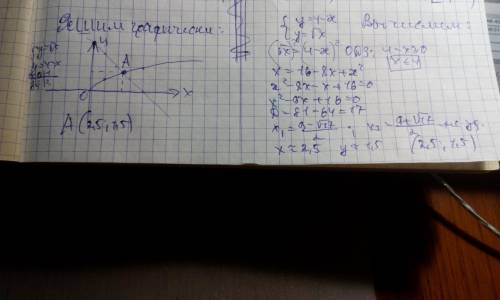 Решим графически:
y
A
0
x
A (2,5; 1,5)
{ y=4-x
{ y=√x
Вычислим:
(√x=4-x)² ОДЗ: 4-x≥0
x≤4
x=16-8x+x²
x²-8x-x+16=0
x²-9x+16=0
D=81-64=17
x₁=(9-√17)/2 ; x₂=(9+√17)/2
x≈2,5 y≈1,5 (2,5; 1,5)